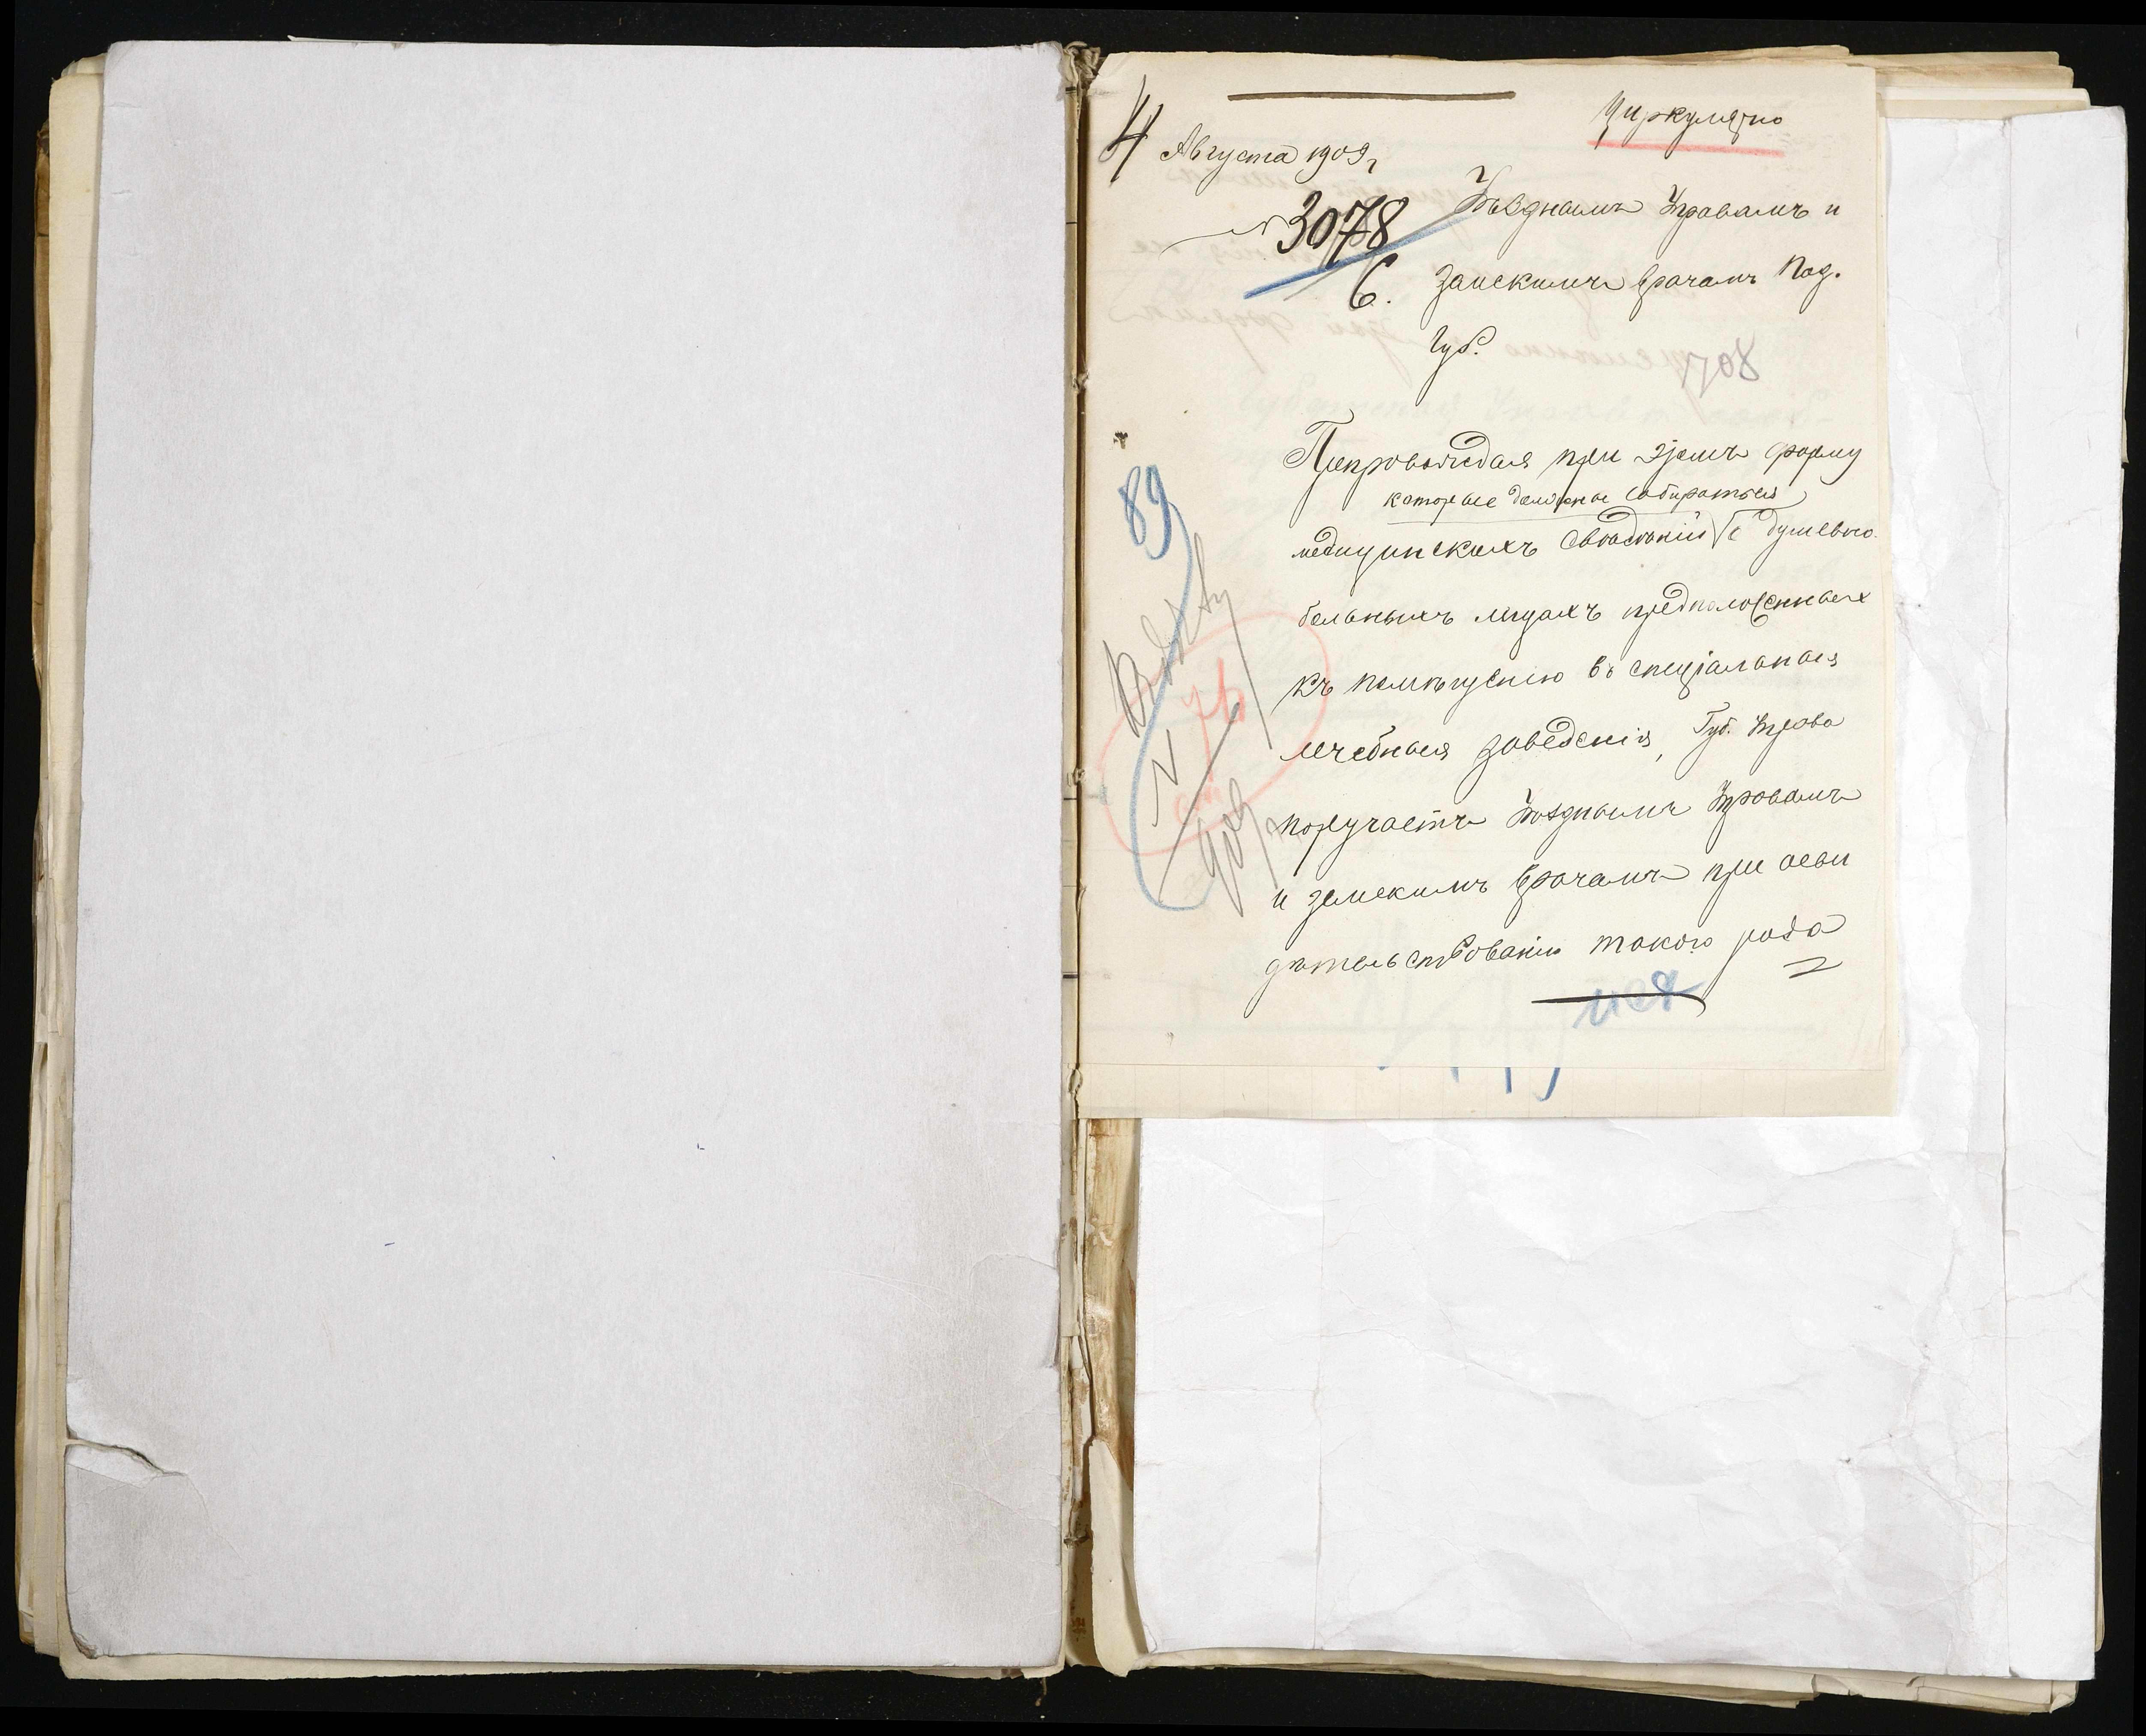 Циркулярно
4 Августа 1909 г
№ 3078
Уѣзднымъ Управамъ и
6. Земскимъ врачамъ Под.
Губ.
Препровождая при этомъ форму
которые должны собираться
медицинскихъ свѣдѣній о душевно-
больныхъ лицахъ предположенныхъ
къ помѣщенію въ спеціальныя
лечебныя заведенія, Губ. Управа
поручаетъ Уѣзднымъ Управамъ
и земскимъ врачамъ при осви
дѣтельствованіи такого рода
89